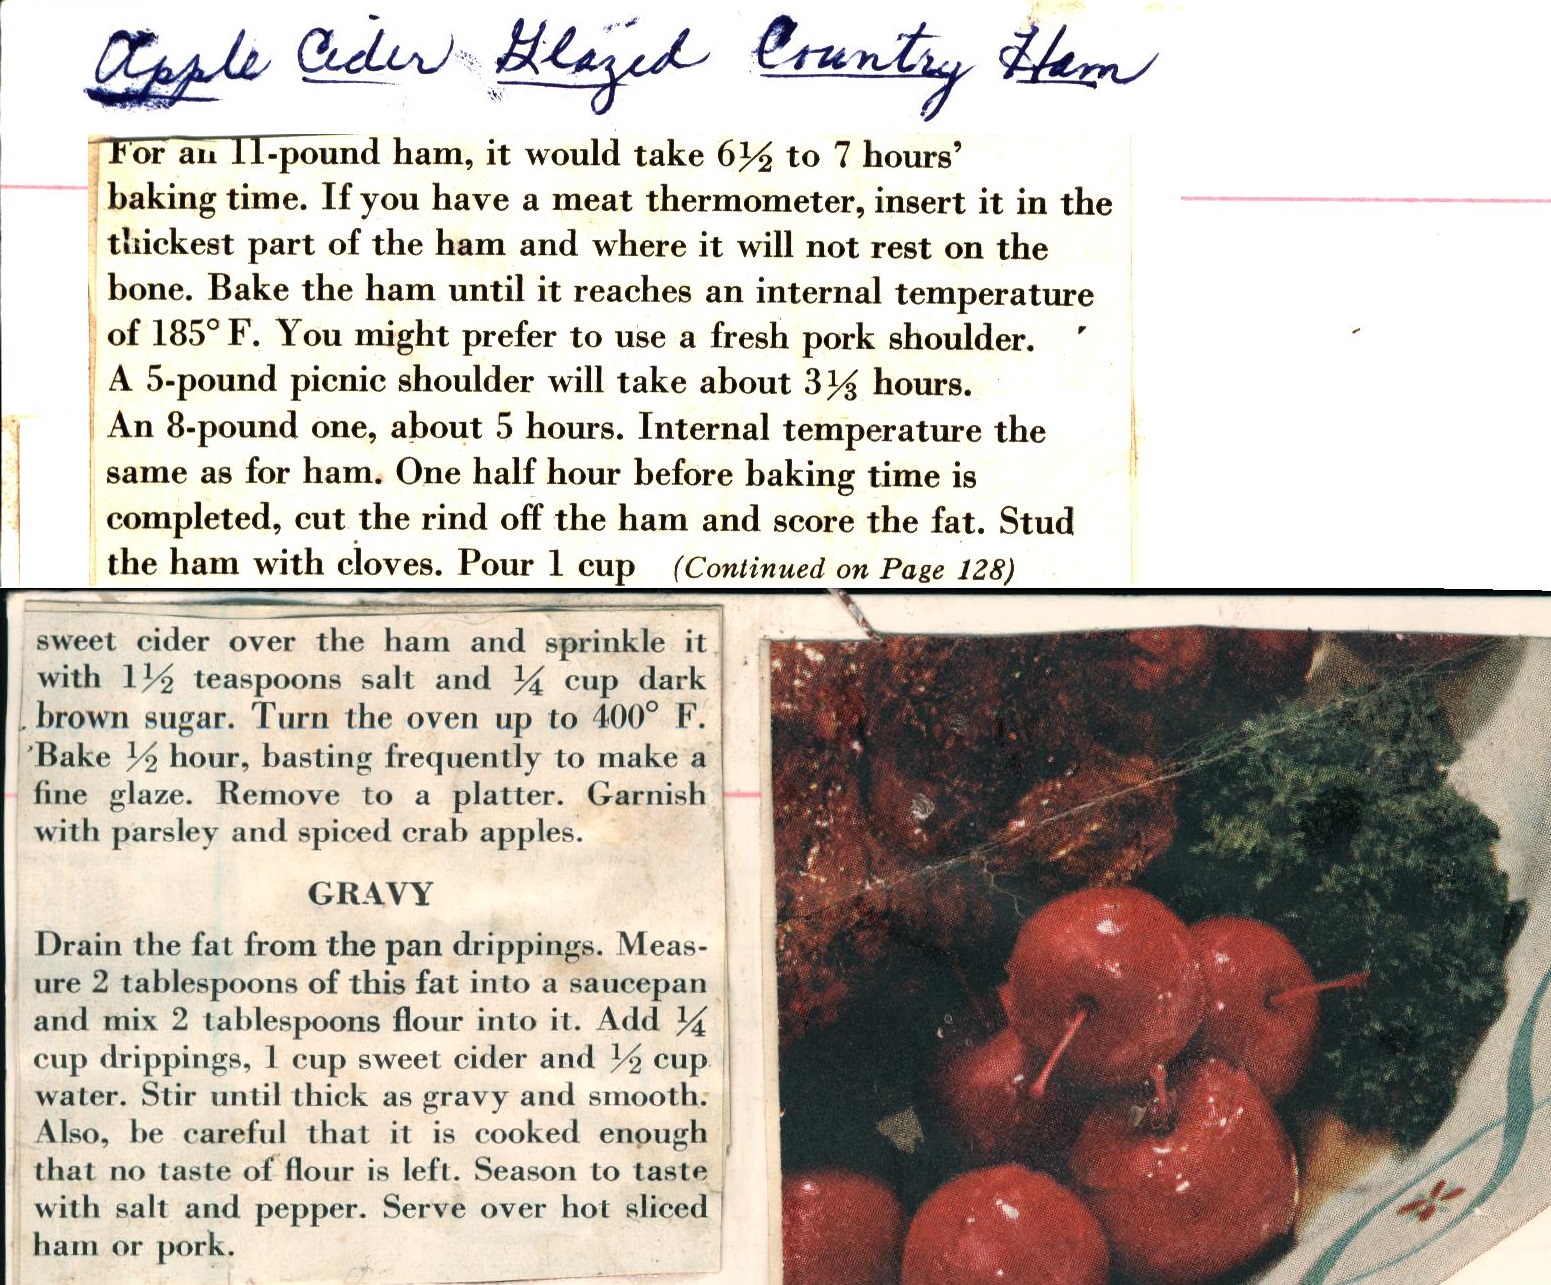 Apple Cider Glazed Country Ham
For an 11-pound ham, it would take 6½ to 7 hours’
baking time. If you have a meat thermometer, insert it in the
thickest part of the ham and where it will not rest on the
bone. Bake the ham until it reaches an internal temperature
of 185° F. You might prefer to use a fresh pork shoulder.
A 5-pound picnic shoulder will take about 3⅓ hours.
An 8-pound one, about 5 hours. Internal temperature the
same as for ham. One half hour before baking time is
completed, cut the rind off the ham and score the fat. Stud
the ham with cloves. Pour 1 cup (Continued on Page 128)
sweet cider over the ham and sprinkle it
with 1½ teaspoons salt and ¼ cup dark
brown sugar. Turn the oven up to 400° F.
Bake ½ hour, basting frequently to make a
fine glaze. Remove to a platter. Garnish
with parsley and spiced crab apples.
GRAVY
Drain the fat from the pan drippings. Meas-
ure 2 tablespoons of this fat into a saucepan
and mix 2 tablespoons flour into it. Add ¼
cup drippings, 1 cup sweet cider and ½ cup
water. Stir until thick as gravy and smooth.
Also, be careful that it is cooked enough
that no taste of flour is left. Season to taste
with salt and pepper. Serve over hot sliced
ham or pork.